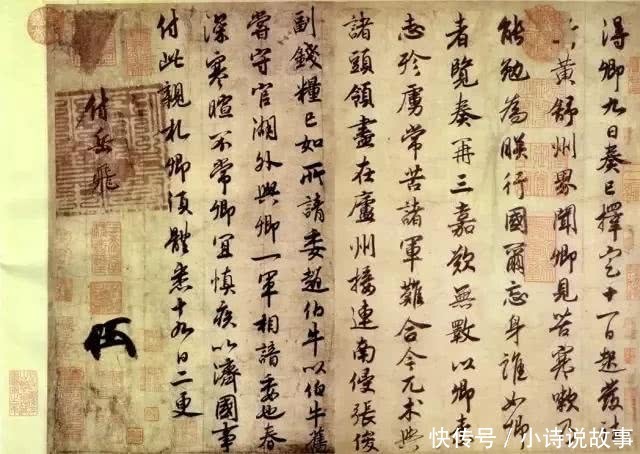 得卿九日奏已擇定十一日起發往
黃舒州界聞卿見苦寒嗽乃
能勉為朕行國爾忘身誰如卿
者覽奏再三嘉歎無斁以卿素
志殄虜常苦諸軍難合今兀术與
諸頭領盡在廬州接連南侵張俊
副錢糧已如所請委趙伯牛以伯牛舊
嘗守官湖外與卿一軍相諳委也春
深寒暄不常卿宜慎疾以濟國事
付此親札卿須體悉十九日二更
付岳飛
快传号/小诗说故事